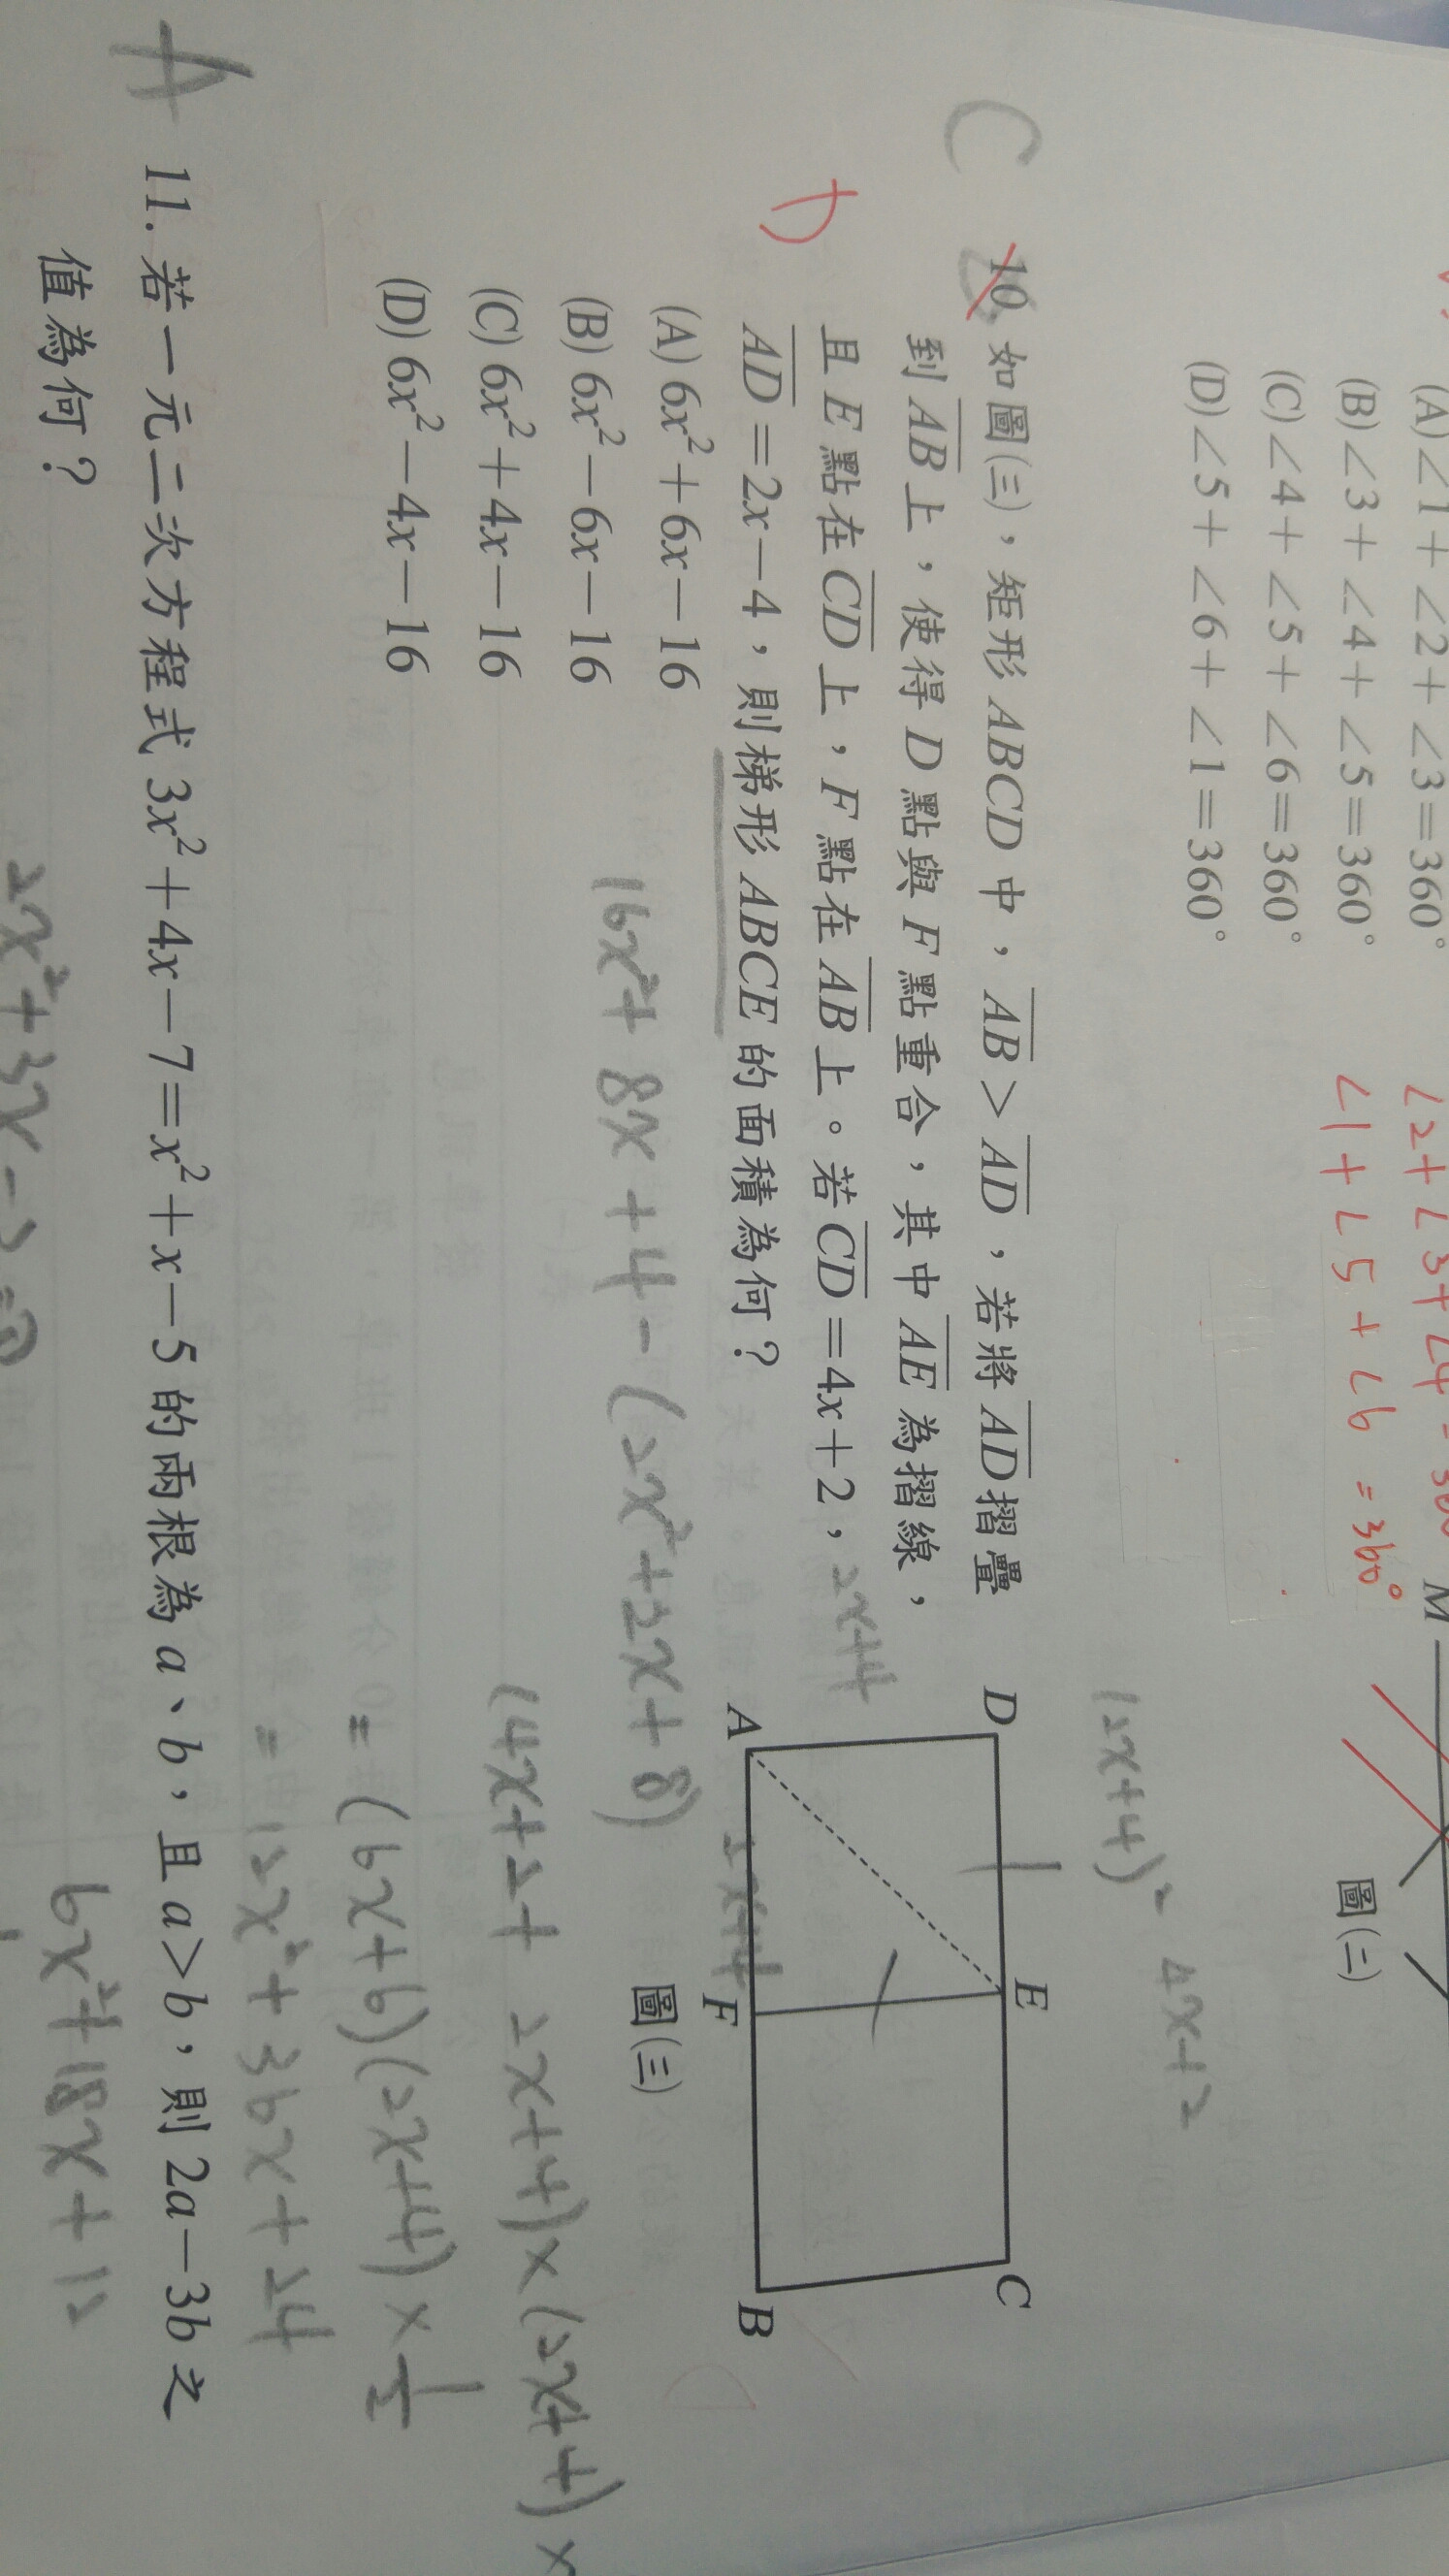 (A) ∠1+∠2+∠3=360°
(B) ∠3+∠4+∠5=360°
(C) ∠4+∠5+∠6=360°
(D) ∠5+∠6+∠1=360°
∠1+∠5+∠6=360°
M
圖(二)
C
10. 如圖(三),矩形ABCD中,AB>AD,若將AD摺疊
到AB上,使得D點與F點重合,其中AE為摺線,
且E點在CD上,F點在AB上。若CD=4x+2,
AD=2x-4,則梯形ABCE的面積為何?
(A) 6x²+6x-16
(B) 6x²-6x-16
(C) 6x²+4x-16
(D) 6x²-4x-16
2x+4
(2x+4)²
4x+2
D
E
C
A
F
B
2x+4
圖(三)
16x²+8x+4-(2x²+2x+8)
(4x+2+2x+4)×(2x+4)×
=(6x+6)(2x+4)×½
=12x²+36x+24
6x²+18x+12
A
11. 若一元二次方程式3x²+4x-7=x²+x-5的兩根為a、b,且a>b,則2a-3b之
值為何?